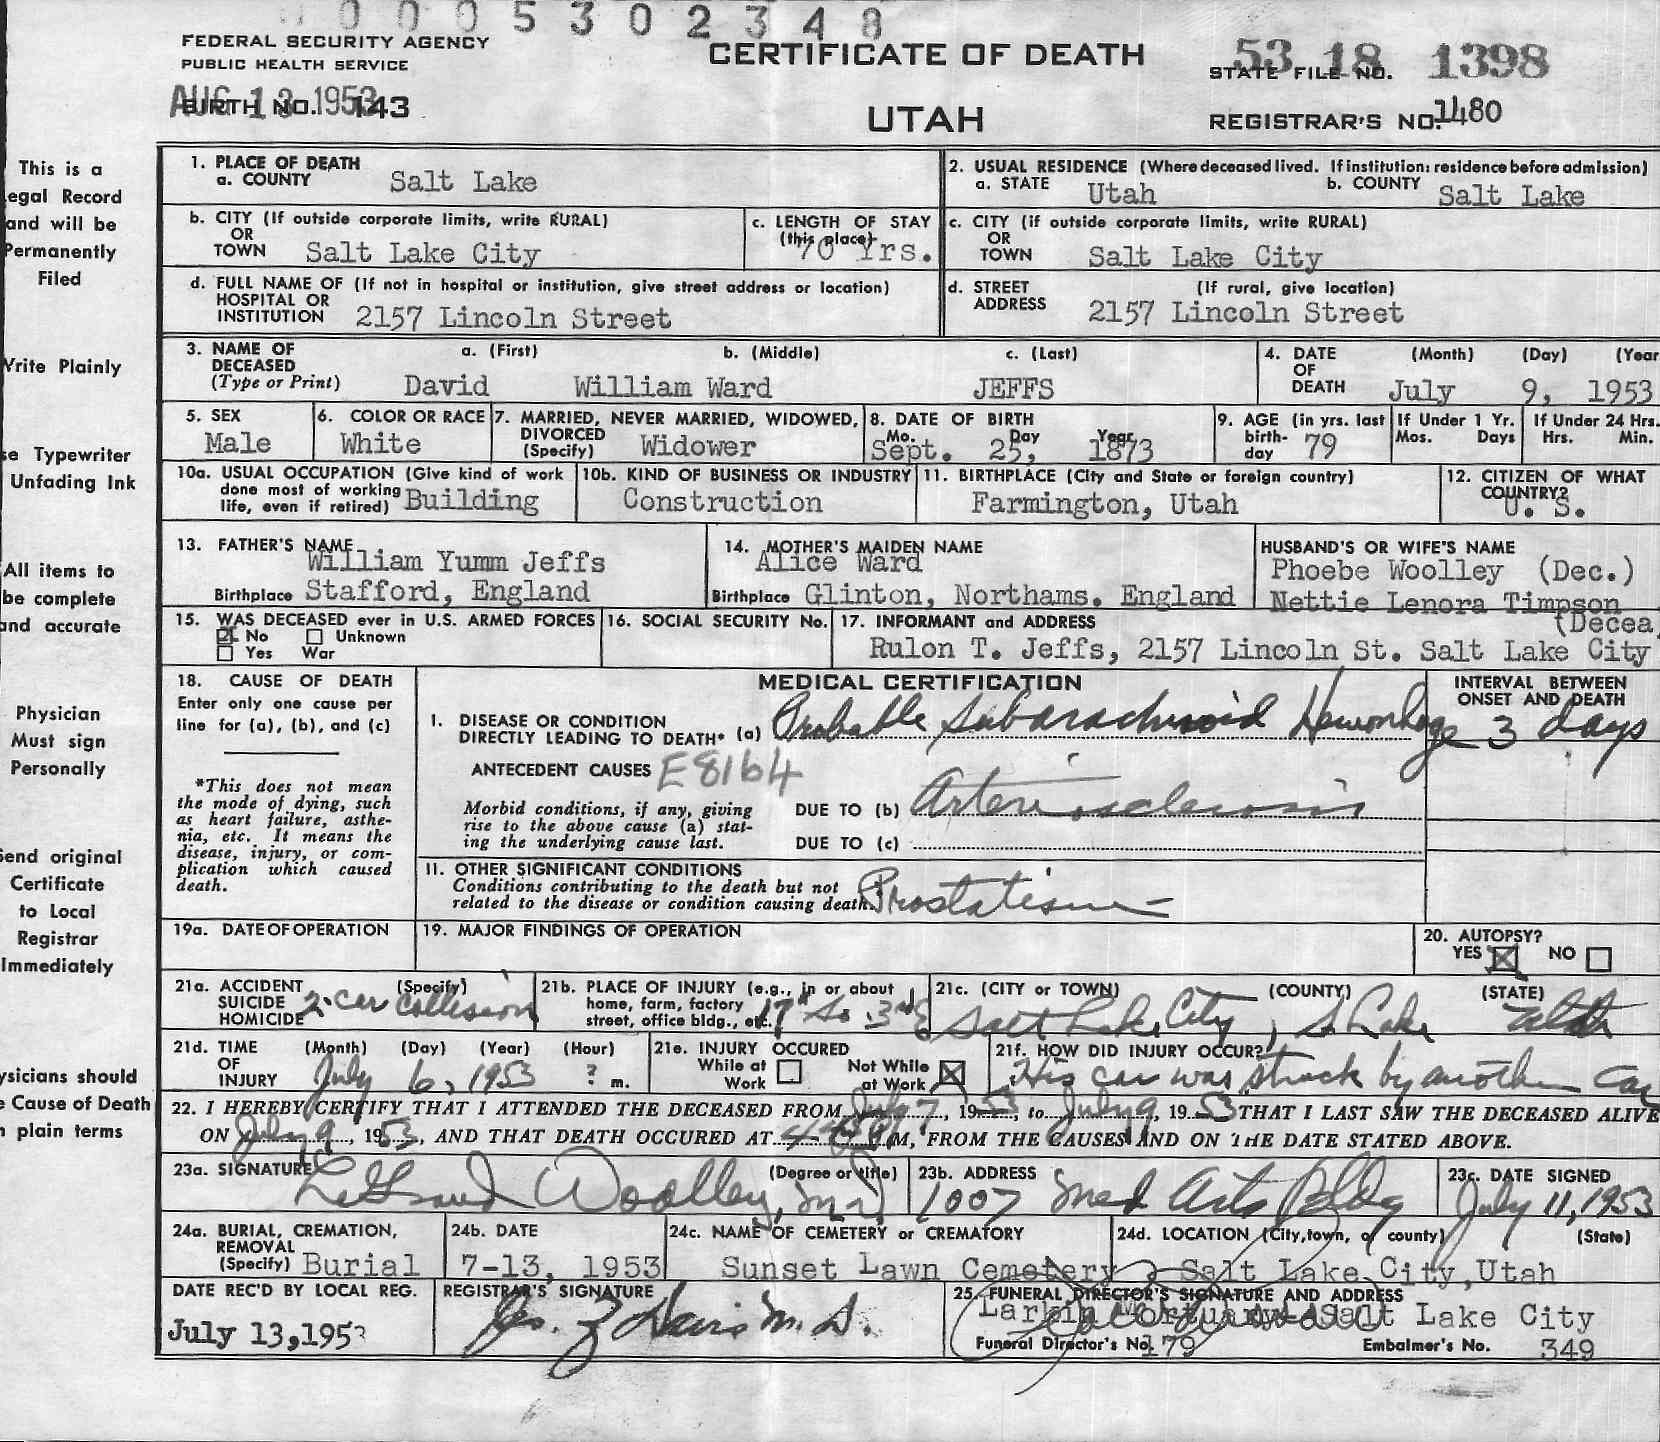 0 0 0 5 3 0 2 3 4 8
FEDERAL SECURITY AGENCY
PUBLIC HEALTH SERVICE
CERTIFICATE OF DEATH
STATE FILE NO. 53 18 1398
AUG 13 1953
BIRTH NO. 143
UTAH
REGISTRAR'S NO. 1480
This is a
egal Record
and will be
Permanently
Filed
Write Plainly
se Typewriter
Unfading Ink
All items to
be complete
and accurate
Physician
Must sign
Personally
Send original
Certificate
to Local
Registrar
Immediately
ysicians should
e Cause of Death
n plain terms
1. PLACE OF DEATH
a. COUNTY Salt Lake
2. USUAL RESIDENCE (Where deceased lived. If institution: residence before admission)
a. STATE Utah b. COUNTY Salt Lake
b. CITY (If outside corporate limits, write RURAL)
OR
TOWN Salt Lake City
c. LENGTH OF STAY
(this place) 70 Yrs.
c. CITY (if outside corporate limits, write RURAL)
OR
TOWN Salt Lake City
d. FULL NAME OF (If not in hospital or institution, give street address or location)
HOSPITAL OR
INSTITUTION 2157 Lincoln Street
d. STREET (If rural, give location)
ADDRESS 2157 Lincoln Street
3. NAME OF a. (First) b. (Middle) c. (Last)
DECEASED
(Type or Print) David William Ward JEFFS
4. DATE (Month) (Day) (Year
OF
DEATH July 9, 1953
5. SEX
Male
6. COLOR OR RACE
White
7. MARRIED, NEVER MARRIED, WIDOWED,
DIVORCED
(Specify) Widower
8. DATE OF BIRTH
Mo. Day Year
Sept. 25, 1873
9. AGE (in yrs. last
birth-
day 79
If Under 1 Yr.
Mos. Days
If Under 24 Hrs.
Hrs. Min.
10a. USUAL OCCUPATION (Give kind of work
done most of working
life, even if retired) Building
10b. KIND OF BUSINESS OR INDUSTRY
Construction
11. BIRTHPLACE (City and State or foreign country)
Farmington, Utah
12. CITIZEN OF WHAT
COUNTRY?
U. S.
13. FATHER'S NAME
William Yumm Jeffs
Birthplace Stafford, England
14. MOTHER'S MAIDEN NAME
Alice Ward
Birthplace Glinton, Northams. England
HUSBAND'S OR WIFE'S NAME
Phoebe Woolley (Dec.)
Nettie Lenora Timpson
(Decea
15. WAS DECEASED ever in U.S. ARMED FORCES
No Unknown
Yes War
16. SOCIAL SECURITY No.
17. INFORMANT and ADDRESS
Rulon T. Jeffs, 2157 Lincoln St. Salt Lake City
18. CAUSE OF DEATH
Enter only one cause per
line for (a), (b), and (c)
*This does not mean
the mode of dying, such
as heart failure, asthe-
nia, etc. It means the
disease, injury, or com-
plication which caused
death.
MEDICAL CERTIFICATION
INTERVAL BETWEEN
ONSET AND DEATH
I. DISEASE OR CONDITION
DIRECTLY LEADING TO DEATH* (a) Probable Subarachnoid Hemorrhage 3 days
ANTECEDENT CAUSES E8164
Morbid conditions, if any, giving
rise to the above cause (a) stat-
ing the underlying cause last.
DUE TO (b) Arteriosclerosis
DUE TO (c)
11. OTHER SIGNIFICANT CONDITIONS
Conditions contributing to the death but not
related to the disease or condition causing death. Prostatism
19a. DATE OF OPERATION
19. MAJOR FINDINGS OF OPERATION
20. AUTOPSY?
YES NO
21a. ACCIDENT (Specify)
SUICIDE
HOMICIDE 2-car collision
21b. PLACE OF INJURY (e.g., in or about
home, farm, factory
street, office bldg., etc. 17th So. 3rd E
21c. (CITY or TOWN) (COUNTY) (STATE)
Salt Lake City, S. Lake Utah
21d. TIME (Month) (Day) (Year) (Hour)
OF
INJURY July 6, 1953 ? m.
21e. INJURY OCCURED
While at Work Not While at Work
21f. HOW DID INJURY OCCUR?
His car was struck by another car
22. I HEREBY CERTIFY THAT I ATTENDED THE DECEASED FROM July 7, 1953, to July 9, 1953 THAT I LAST SAW THE DECEASED ALIVE
ON July 9, 1953, AND THAT DEATH OCCURED AT M, FROM THE CAUSES AND ON THE DATE STATED ABOVE.
23a. SIGNATURE (Degree or title)
LeGrand Woolley, M.D.
23b. ADDRESS
1007 Med Arts Bldg
23c. DATE SIGNED
July 11, 1953
24a. BURIAL, CREMATION,
REMOVAL
(Specify) Burial
24b. DATE
7-13, 1953
24c. NAME OF CEMETERY or CREMATORY
Sunset Lawn Cemetery
24d. LOCATION (City, town, or county) (State)
Salt Lake City, Utah
DATE REC'D BY LOCAL REG.
July 13, 1953
REGISTRAR'S SIGNATURE
25. FUNERAL DIRECTOR'S SIGNATURE AND ADDRESS
Larkin Mortuary Salt Lake City
Funeral Director's No. 179 Embalmer's No. 349